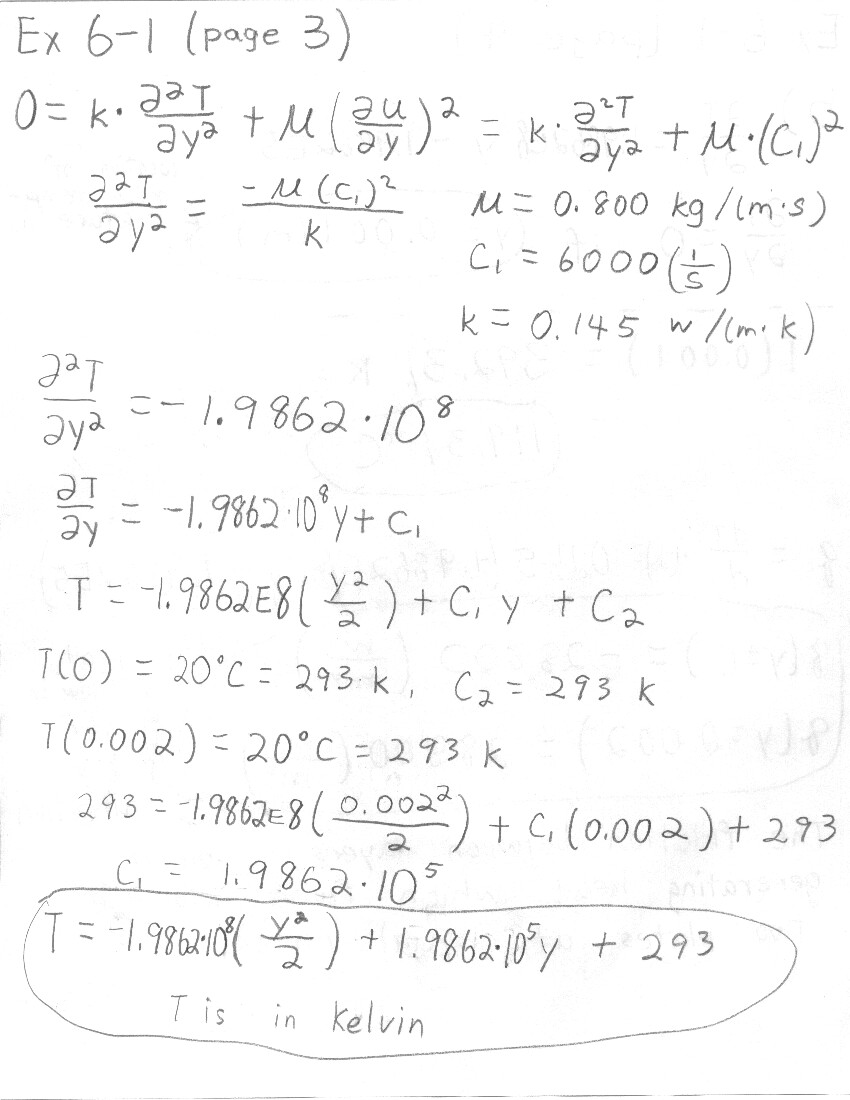 Ex 6-1 (page 3)
0 = k · ∂²T/∂y² + μ (∂u/∂y)² = k · ∂²T/∂y² + μ·(C₁)²
∂²T/∂y² = -μ(C₁)²/k
μ = 0.800 kg/(m·s)
C₁ = 6000 (1/s)
k = 0.145 w/(m·k)
∂²T/∂y² = -1.9862·10⁸
∂T/∂y = -1.9862·10⁸y + C₁
T = -1.9862E8(y²/2) + C₁ y + C₂
T(0) = 20°C = 293 k, C₂ = 293 k
T(0.002) = 20°C = 293 k
293 = -1.9862E8(0.002²/2) + C₁(0.002) + 293
C₁ = 1.9862·10⁵
T = -1.9862·10⁸(y²/2) + 1.9862·10⁵y + 293
T is in Kelvin